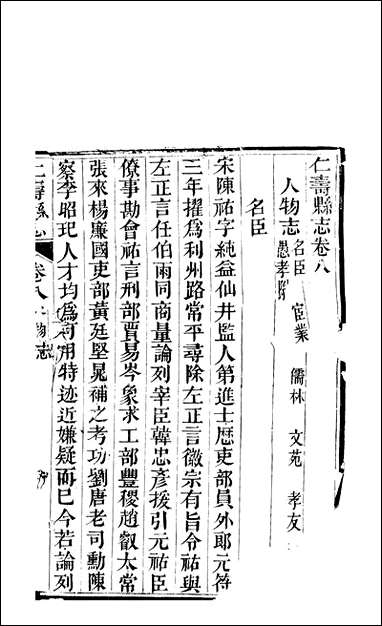 仁壽縣志卷八
人物志 名臣 宦業 儒林 文苑 孝友
愚孝附
名臣
宋陳祐字純益仙井監人第進士歷吏部員外郎元符
三年擢爲利州路常平尋除左正言徽宗有旨令祐與
左正言任伯雨同商量論列宰臣韓忠彥援引元祐臣
僚事勘會祐言刑部賈易岑象求工部豐稷趙叡太常
張來楊廉國吏部黃廷堅晁補之考功劉唐老司勳陳
察李昭玘人才均爲可用特迹近嫌疑而已今若論列
仁壽縣志 卷八 人物志